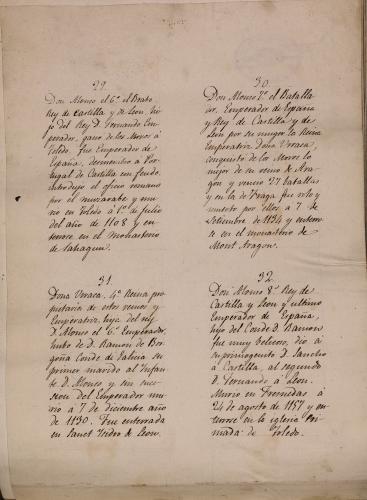 29.
Don Alonso el 6º el Brabo
Rey de Castilla, y de Leon hi-
jo del Rey D. Fernando Em-
perador, gano de los Moros à
Toledo, fue Emperador de
España, desmembro à Por-
tugal de Castilla en feudo.
introdujo el oficio romano
por el muzarabe y mu-
rio en Toledo à 1º de julio
del año de 1108 y en-
terrose en el monasterio
de Sahagun.
30.
Don Alonso 7º el Batalla-
dor, Emperador de España
y Rey de Castilla y de
Leon por su muger la Reina
Emperatriz Doña Urraca,
conquisto de los Moros lo
mejor de su reino de Ara-
gon y vencio 27 batallas
y en la de Fraga fue roto y
muerto por ellos, à 7 de
Setiembre de 1134 y enterro-
se en el monasterio de
Mont Aragon.
31.
Dona Urraca, 4ª Reina pro-
pietaria de estos reinos y
Emperatriz, hija del rey
D. Alonso el 6º Emperador,
hubo de D. Ramon de Bor-
goña Conde de Galicia su
primer marido al Infan-
te D. Alonso, y sin suc-
cesion del Emperador mu-
rio a 7 de diciembre año
de 1130. Fue enterrada
en Sanct Isidro de Leon.
32.
Don Alonso 8º Rey de
Castilla y Leon y ultimo
Emperador de España,
hijo del Conde D. Ramon
fue muy belicoso, dio à
su primogenito D. Sancho
à Castilla, al segundo
D. Fernando à Leon.
Murio en Fresnedas à
24 de agosto de 1157 y en-
terrose en la iglesia Pri-
mada de Toledo.